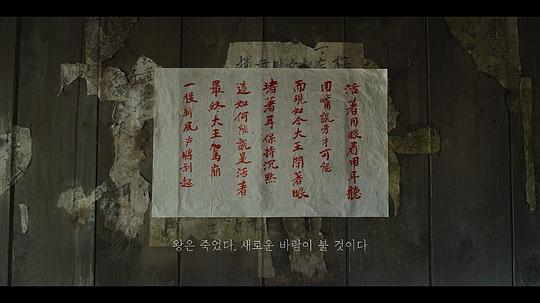 活著用眼看用耳聽
用嘴說方才可能
而現如今大王閉著眼
堵著耳保持沉默
這如何能說是活著
最終大王駕崩
一股新風 將刮起
왕은 죽었다. 새로운 바람이 불 것이다